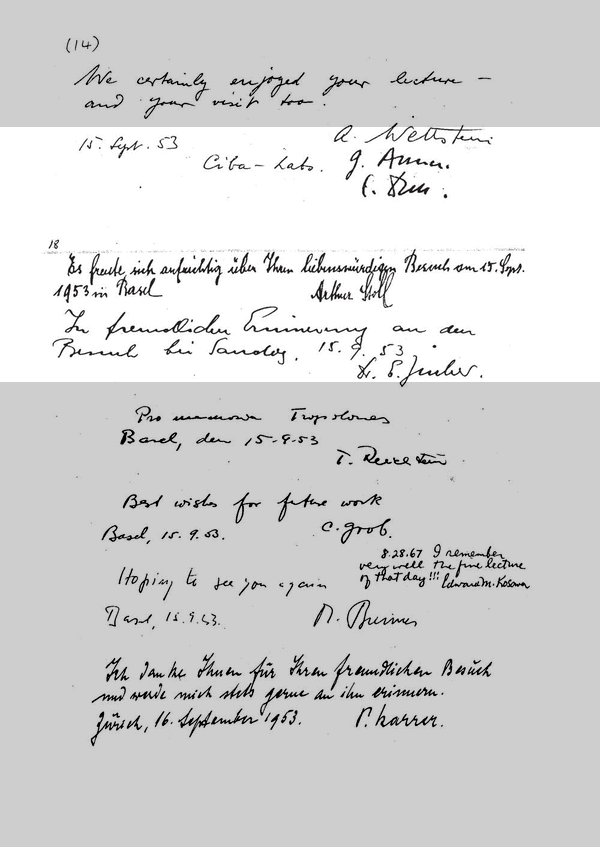 (14)
We certainly enjoyed your lecture –
and your visit too.
15. Sept. 53
A. Wettstein
Ciba – Labs. G. Anner.
18
Es freute sich aufrichtig über Ihren liebenswürdigen Besuch am 15. Sept.
1953 in Basel
Arthur Stoll
In freundlicher Erinnerung an den
Besuch bei Sandoz, 15. 9. 53.
Dr. E.
Pro memoria Tropolones
Basel, den 15-9-53
T. Reichstein
Best wishes for future work
Basel, 15. 9. 53.
C. Grob.
8.28.67 I remember
very well the fine lecture
of that day!!! Edward M. Kosower
Hoping to see you again
Basel, 15.9.53.
M. Brenner
Ich danke Ihnen für Ihren freundlichen Besuch
und werde mich stets gerne an ihn erinnern.
Zürich, 16. September 1953.
P. Karrer.